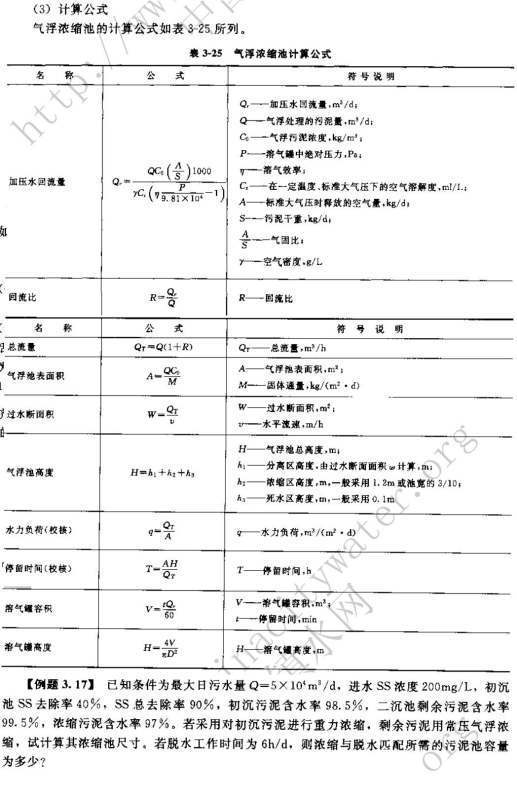 (3) 计算公式
气浮浓缩池的计算公式如表 3-25 所列。
表 3-25 气浮浓缩池计算公式
名 称 公 式 符号说明
加压水回流量 Qr=QC0(A/S)1000/γCs(ηP/9.81×10⁴-1)
Qr——加压水回流量,m³/d;
Q——气浮处理的污泥量,m³/d;
C0——气浮污泥浓度,kg/m³;
P——溶气罐中绝对压力,Pa;
η——溶气效率;
Cs——在一定温度、标准大气压下的空气溶解度,ml/L;
A——标准大气压时释放的空气量,kg/d;
S——污泥干重,kg/d;
A/S——气固比;
γ——空气密度,g/L
如
回流比 R=Qr/Q R——回流比
名 称 公 式 符 号 说 明
总流量 QT=Q(1+R) QT——总流量,m³/h
气浮池表面积 A=QC0/M A——气浮池表面积,m²;
M——固体通量,kg/(m²·d)
过水断面积 W=QT/v W——过水断面积,m²;
v——水平流速,m/h
气浮池高度 H=h1+h2+h3
H——气浮池总高度,m;
h1——分离区高度,由过水断面面积w计算,m;
h2——浓缩区高度,m,一般采用 1.2m 或池宽的 3/10;
h3——死水区高度,m,一般采用 0.1m
水力负荷(校核) q=QT/A q——水力负荷,m³/(m²·d)
停留时间(校核) T=AH/QT T——停留时间,h
溶气罐容积 V=tQr/60 V——溶气罐容积,m³;
t——停留时间,min
溶气罐高度 H=4V/πD² H——溶气罐高度,m
【例题 3.17】 已知条件为最大日污水量 Q=5×10⁴m³/d，进水 SS 浓度 200mg/L，初沉
池 SS 去除率 40%，SS 总去除率 90%，初沉污泥含水率 98.5%，二沉池剩余污泥含水率
99.5%，浓缩污泥含水率 97%。若采用对初沉污泥进行重力浓缩，剩余污泥用常压气浮浓
缩，试计算其浓缩池尺寸。若脱水工作时间为 6h/d，则浓缩与脱水匹配所需的污泥池容量
为多少?